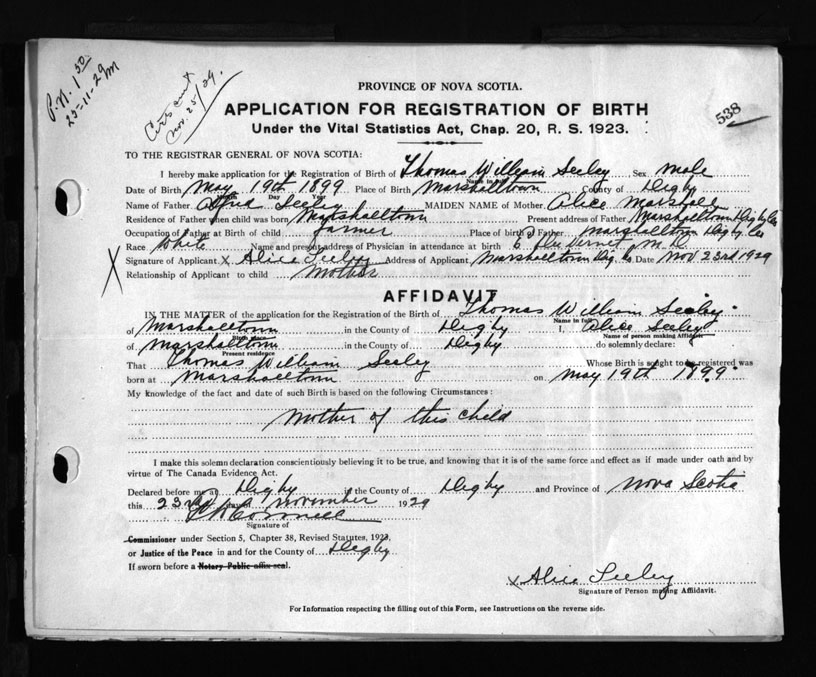 P.N. 1 50
23-11-29
Nov. 25/29.
PROVINCE OF NOVA SCOTIA.
APPLICATION FOR REGISTRATION OF BIRTH
538
Under the Vital Statistics Act, Chap. 20, R. S. 1923.
TO THE REGISTRAR GENERAL OF NOVA SCOTIA:
I hereby make application for the Registration of Birth of Thomas William Seeley Sex male
Name in full
Date of Birth May 19th 1899 Place of Birth Marshalltown County of Digby
Day Year
Name of Father Seeley MAIDEN NAME of Mother Alice Marshall
Residence of Father when child was born Marshalltown Present address of Father Marshalltown Digby Co
Occupation of Father at Birth of child farmer Place of birth of Father Marshalltown Digby Co
Race White Name and present address of Physician in attendance at birth M D
Signature of Applicant x Alice Seeley Address of Applicant Marshalltown Dig. Co. Date Nov 23rd 1929
X
Relationship of Applicant to child Mother
AFFIDAVIT
IN THE MATTER of the application for the Registration of the Birth of Thomas William Seeley
Name in full
of Marshalltown in the County of Digby I, Alice Seeley
Birth place Name of person making Affidavit
of Marshalltown in the County of Digby do solemnly declare:
Present residence
That Thomas William Seeley Whose Birth is sought to be registered was
born at Marshalltown on May 19th 1899.
My knowledge of the fact and date of such Birth is based on the following Circumstances:
Mother of this child
I make this solemn declaration conscientiously believing it to be true, and knowing that it is of the same force and effect as if made under oath and by
virtue of The Canada Evidence Act.
Declared before me at Digby in the County of Digby and Province of Nova Scotia
this 23rd day of November 1929
Signature of
Commissioner under Section 5, Chapter 38, Revised Statutes, 1923,
or Justice of the Peace in and for the County of Digby
If sworn before a Notary Public affix seal.
x Alice Seeley
Signature of Person making Affidavit.
For Information respecting the filling out of this Form, see Instructions on the reverse side.